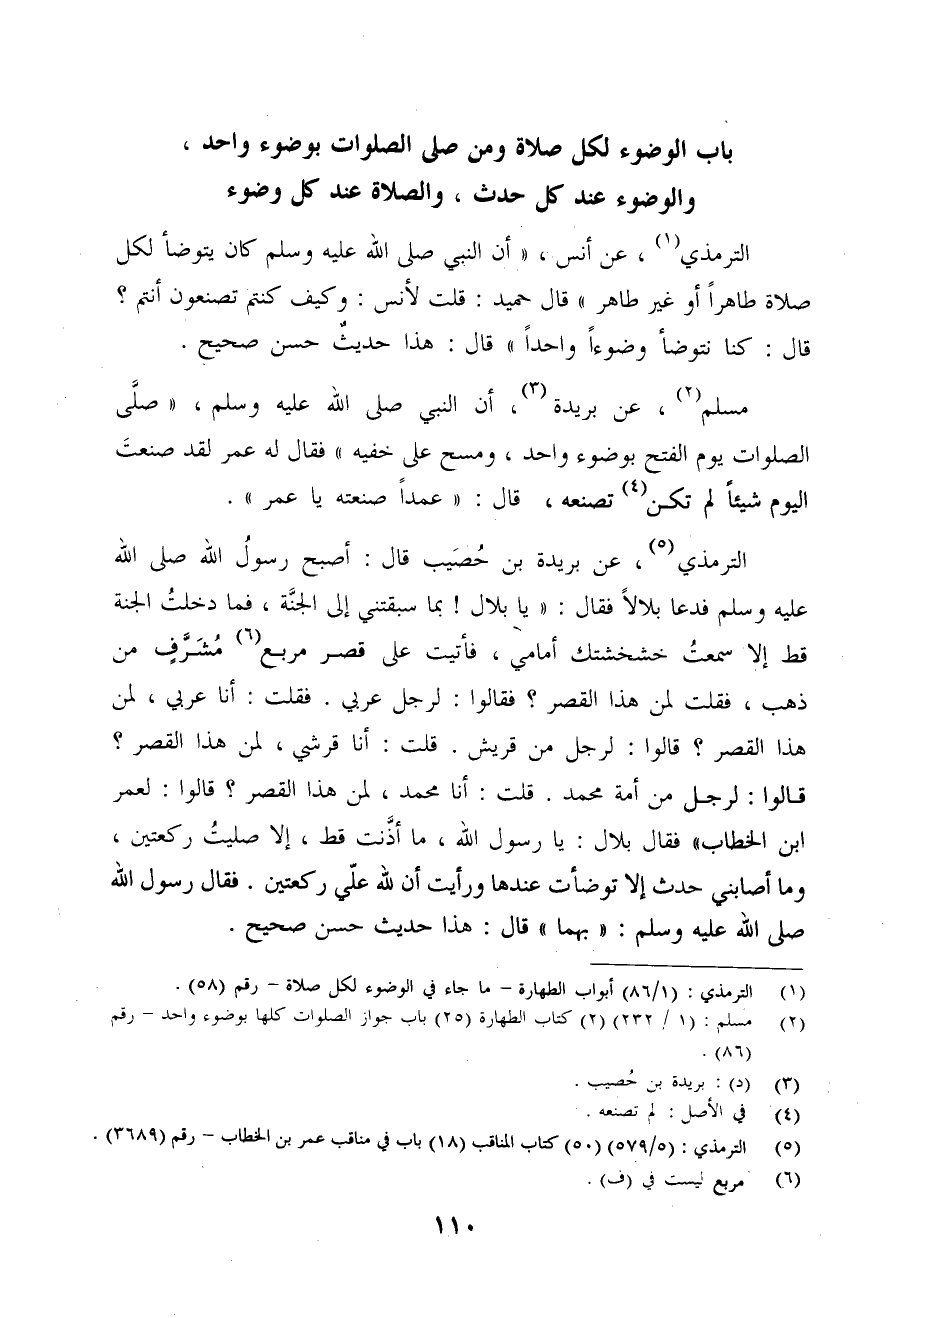 باب الوضوء لكل صلاة ومن صلى الصلوات بوضوء واحد ،
والوضوء عند كل حدث ، والصلاة عند كل وضوء
الترمذي(١) ، عن أنس ، « أن النبي صلى الله عليه وسلم كان يتوضأ لكل
صلاة طاهراً أو غير طاهر » قال حميد : قلت لأنس : وكيف كنتم تصنعون أنتم ؟
قال : كنا نتوضأ وضوءاً واحداً » قال : هذا حديثٌ حسن صحيح .
مسلم(٢) ، عن بريدة(٣)، أن النبي صلى الله عليه وسلم ، « صلَّى
الصلوات يوم الفتح بوضوء واحد ، ومسح على خفيه » فقال له عمر لقد صنعتَ
اليوم شيئاً لم تكن(٤) تصنعه ، قال : « عمداً صنعته يا عمر » .
الترمذي(٥)، عن بريدة بن حُصَيب قال : أصبح رسولُ الله صلى الله
عليه وسلم فدعا بلالاً فقال : « يا بلال ! بما سبقتني إلى الجنَّة ، فما دخلتُ الجنة
قط إلا سمعتُ خشخشتك أمامي ، فأتيت على قصر مربع(٦) مُشَرَّفٍ من
ذهب ، فقلت لمن هذا القصر ؟ فقالوا : لرجل عربي . فقلت : أنا عربي ، لمن
هذا القصر ؟ قالوا : لرجل من قريش . قلت : أنا قرشي ، لمن هذا القصر ؟
قالوا : لرجل من أمة محمد . قلت : أنا محمد ، لمن هذا القصر ؟ قالوا : لعمر
ابن الخطاب» فقال بلال : يا رسول الله ، ما أذَّنت قط ، إلا صليتُ ركعتين ،
وما أصابني حدث إلا توضأت عندها ورأيت أن لله علّي ركعتين . فقال رسول الله
صلى الله عليه وسلم : « بهما » قال : هذا حديث حسن صحيح .
(١) الترمذي : (٨٦/١) أبواب الطهارة – ما جاء في الوضوء لكل صلاة – رقم (٥٨) .
(٢) مسلم : (١ / ٢٣٢) (٢) كتاب الطهارة (٢٥) باب جواز الصلوات كلها بوضوء واحد – رقم
(٨٦) .
(٣) (د) : بريدة بن حُصيب .
(٤) في الأصل : لم تصنعه .
(٥) الترمذي : (٥٧٩/٥) (٥٠) كتاب المناقب (١٨) باب في مناقب عمر بن الخطاب – رقم (٣٦٨٩) .
(٦) مربع ليست في (ف) .
١١٠